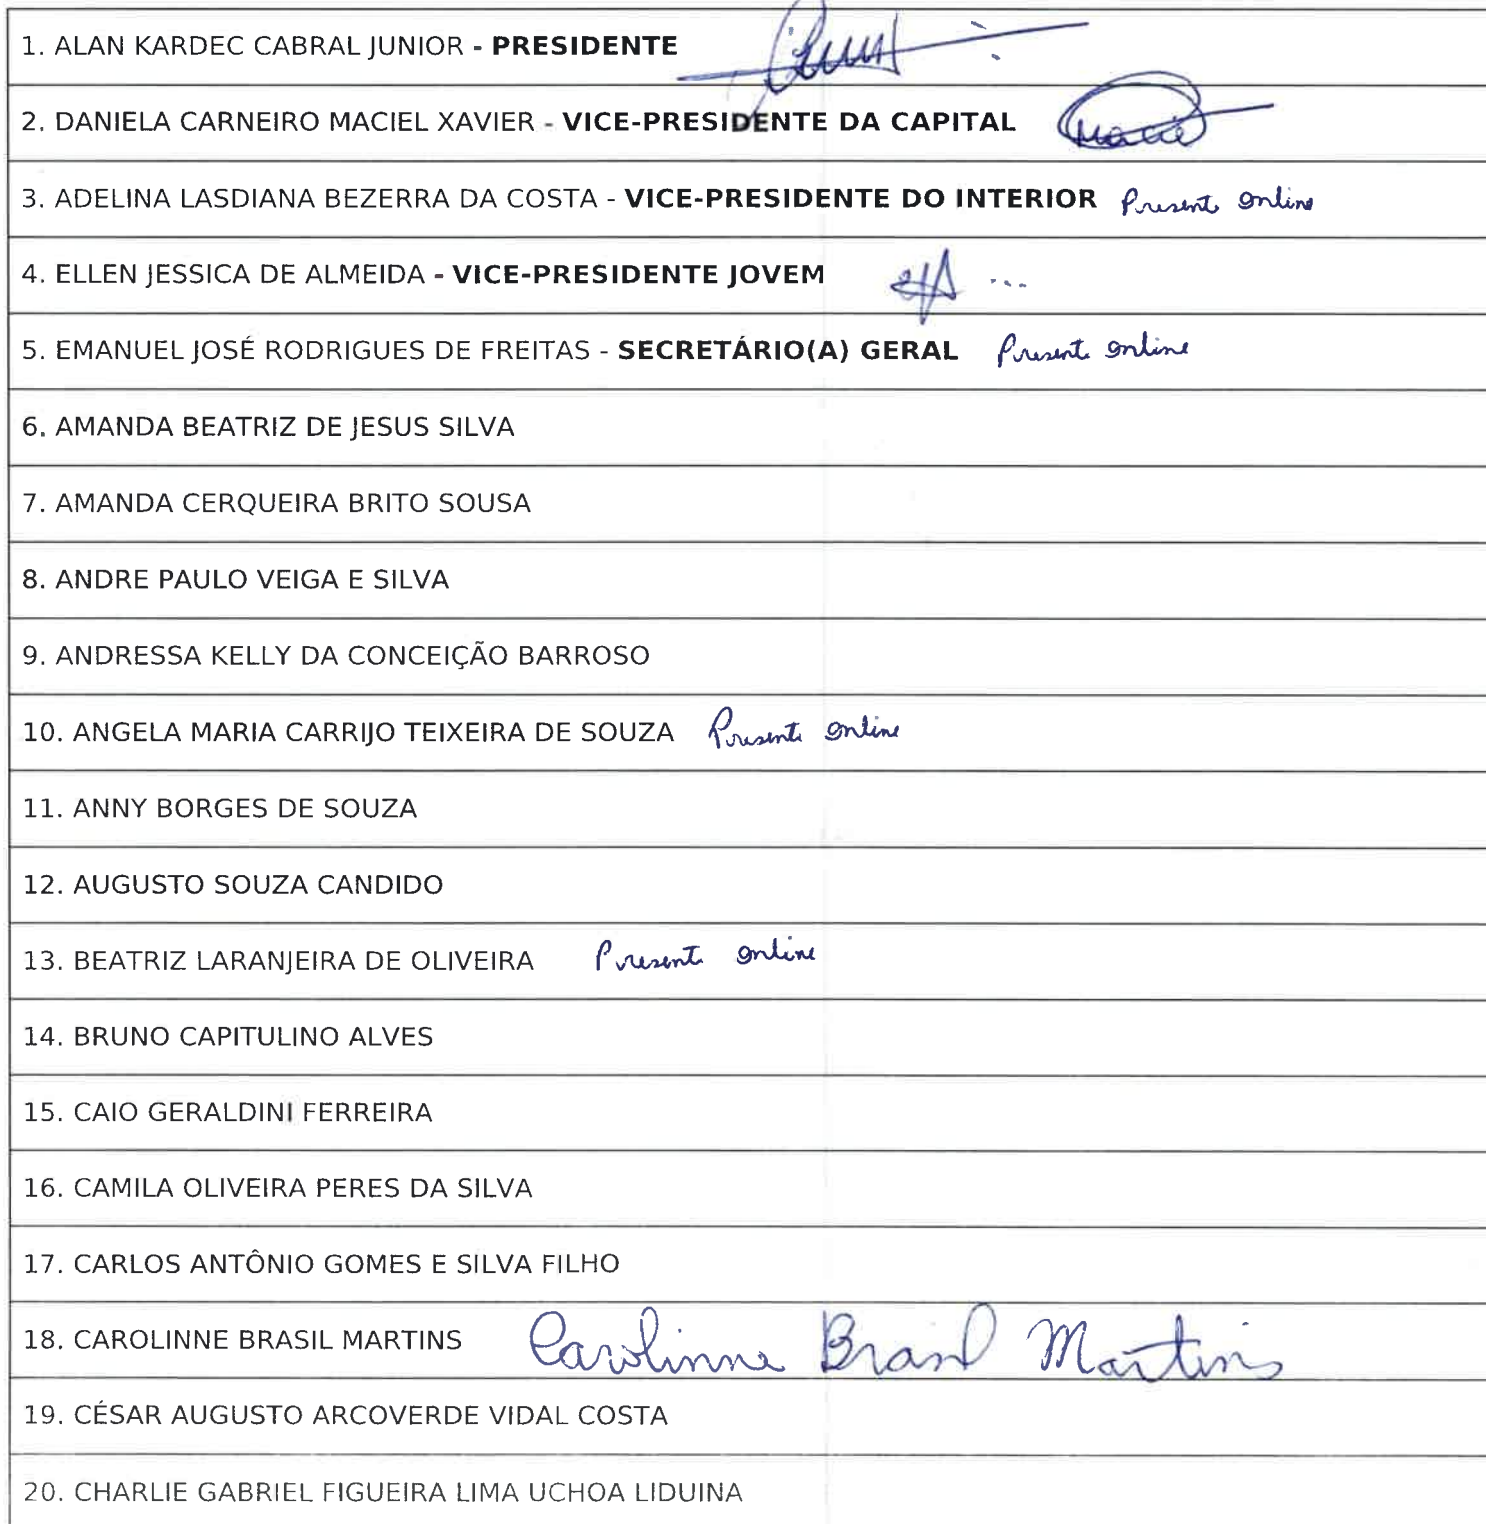 1. ALAN KARDEC CABRAL JUNIOR - PRESIDENTE
2. DANIELA CARNEIRO MACIEL XAVIER - VICE-PRESIDENTE DA CAPITAL
3. ADELINA LASDIANA BEZERRA DA COSTA - VICE-PRESIDENTE DO INTERIOR Presente online
4. ELLEN JESSICA DE ALMEIDA - VICE-PRESIDENTE JOVEM
5. EMANUEL JOSÉ RODRIGUES DE FREITAS - SECRETÁRIO(A) GERAL Presente online
6. AMANDA BEATRIZ DE JESUS SILVA
7. AMANDA CERQUEIRA BRITO SOUSA
8. ANDRE PAULO VEIGA E SILVA
9. ANDRESSA KELLY DA CONCEIÇÃO BARROSO
10. ANGELA MARIA CARRIJO TEIXEIRA DE SOUZA Presente online
11. ANNY BORGES DE SOUZA
12. AUGUSTO SOUZA CANDIDO
13. BEATRIZ LARANJEIRA DE OLIVEIRA Presente online
14. BRUNO CAPITULINO ALVES
15. CAIO GERALDINI FERREIRA
16. CAMILA OLIVEIRA PERES DA SILVA
17. CARLOS ANTÔNIO GOMES E SILVA FILHO
18. CAROLINNE BRASIL MARTINS Carolinne Brasil Martins
19. CÉSAR AUGUSTO ARCOVERDE VIDAL COSTA
20. CHARLIE GABRIEL FIGUEIRA LIMA UCHOA LIDUINA